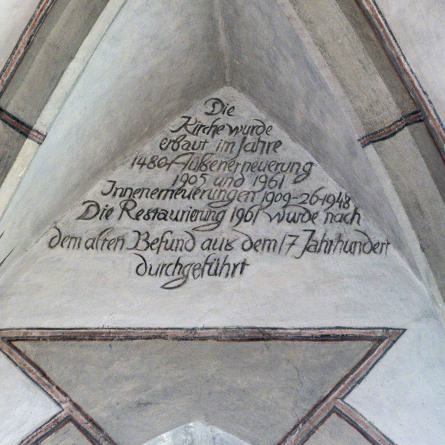 Die
Kirche wurde
erbaut im Jahre
1480 Außenerneuerung
1905 und 1961
Innenerneuerungen 1909-26-1948
Die Restaurierung 1961 wurde nach
dem alten Befund aus dem 17 Jahrhundert
durchgeführt